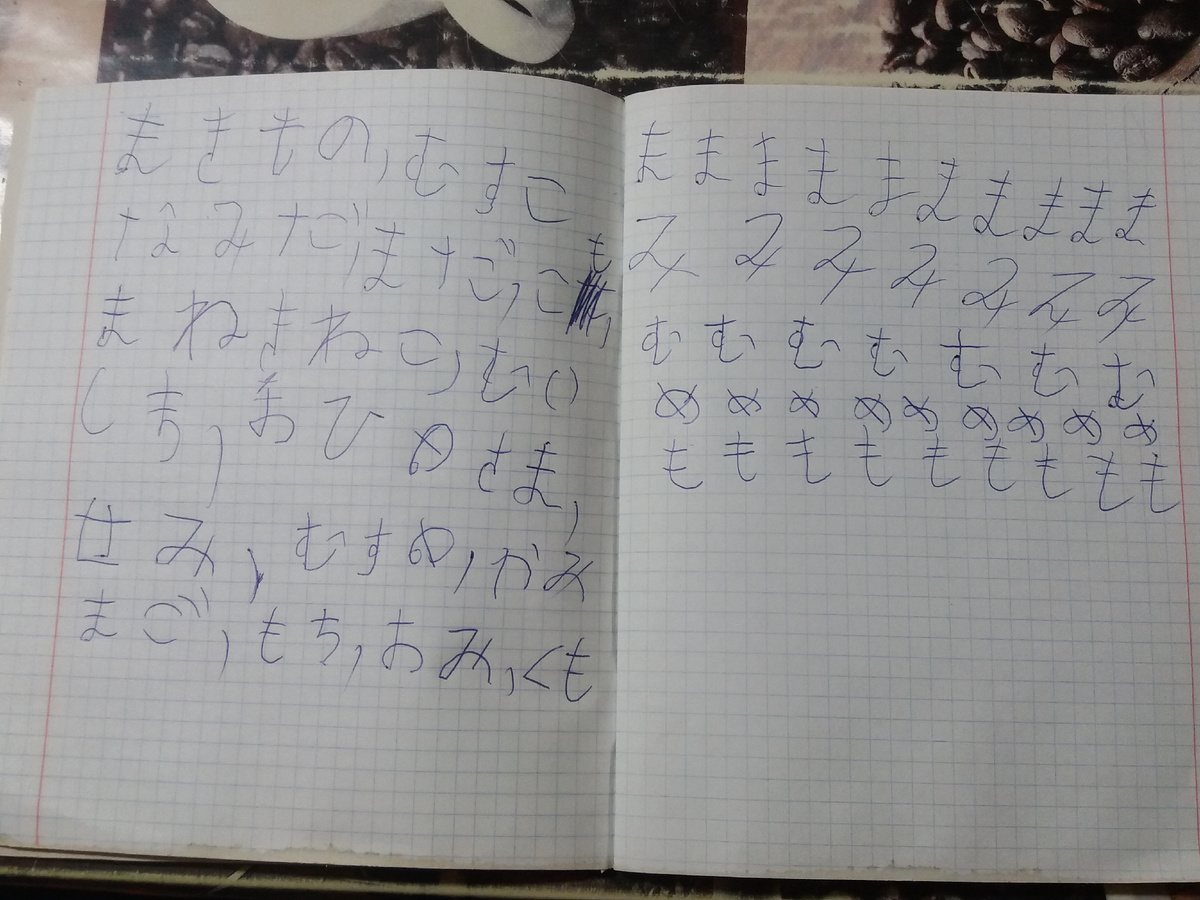 まきもの, むすこ
なみだ, まなご, こも,
まねきねこ, む()
しち, おひめさま,
せみ, むすめ, かみ
まご, もち, おみ, くも
まままままままままま
みみみみみみみ
むむむむむむむ
めめめめめめめめめ
ももももももももも